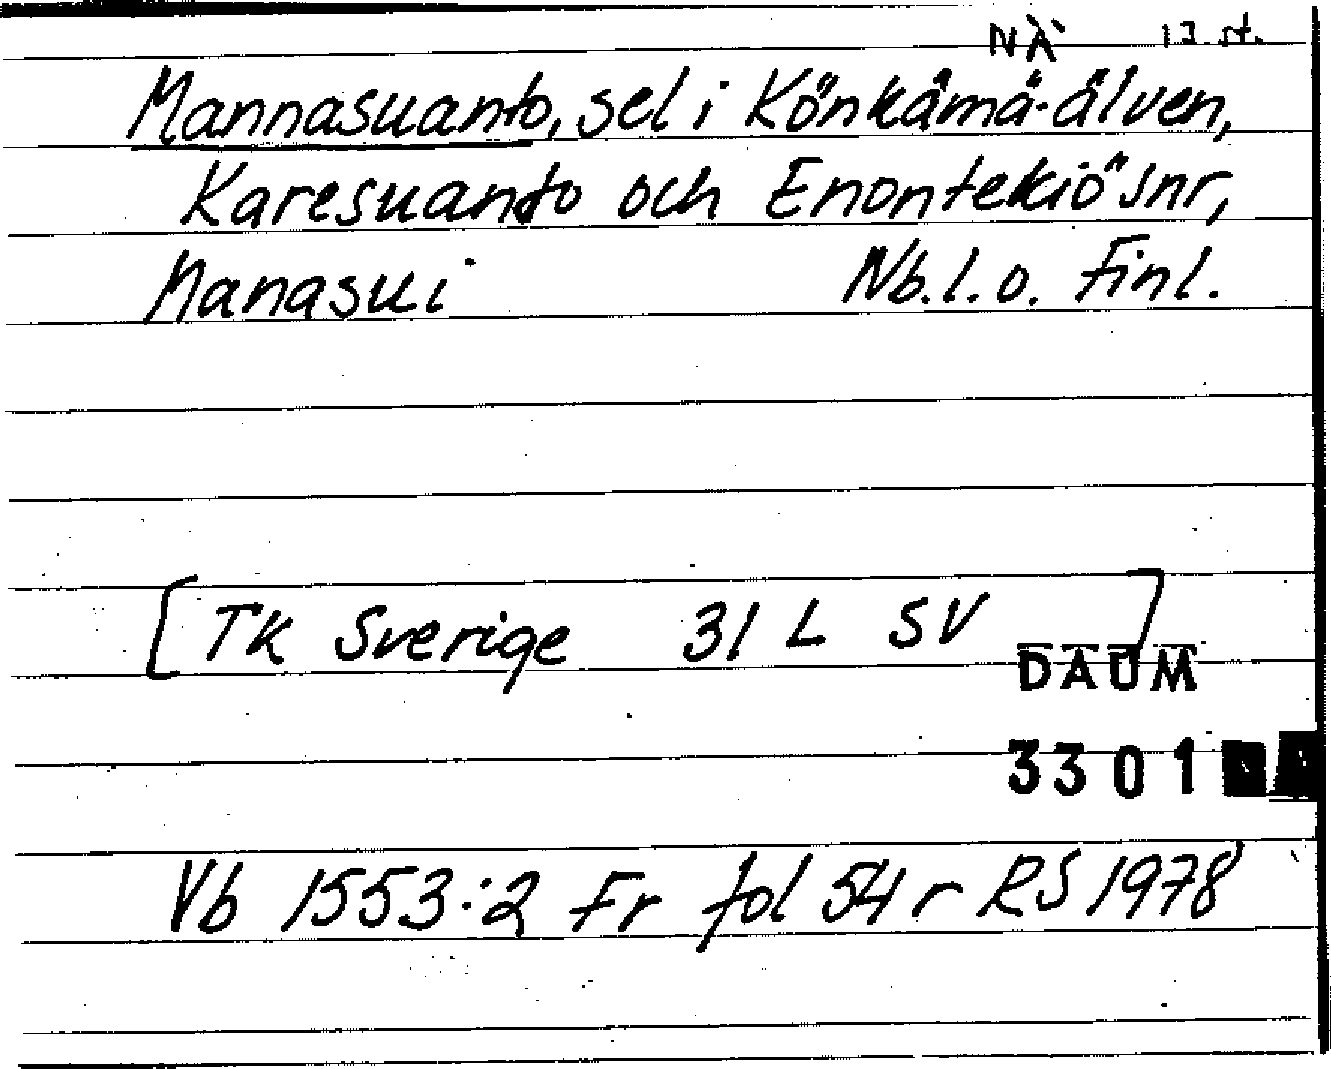 NÄ 13 st.
Mannasuanto, sel i Könkämä-älven,
Karesuanto och Enontekiö snr,
Manasui Nb.l. o. Finl.
[TK Sverige 31 L SV]
DAUM
3301
Vb 1553:2 Fr fol 54 r RS 1978